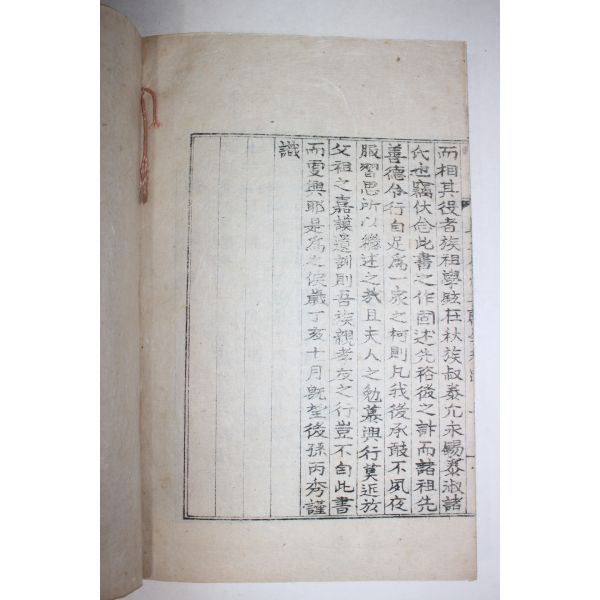 而相其役者族祖學鉉在秋族叔泰九永錫泰淑諸
氏也竊伏念此書之作固述先裕後之計而諸祖先
善德令行自足爲一家之柯則凡我後承敢不夙夜
服習思所以繼述之哉且夫人之勉慕興行莫近於
父祖之嘉謨遺訓則吾族親孝友之行豈不自此書
而更興耶是爲之俟歲丁亥十月旣望後孫丙秀謹
識